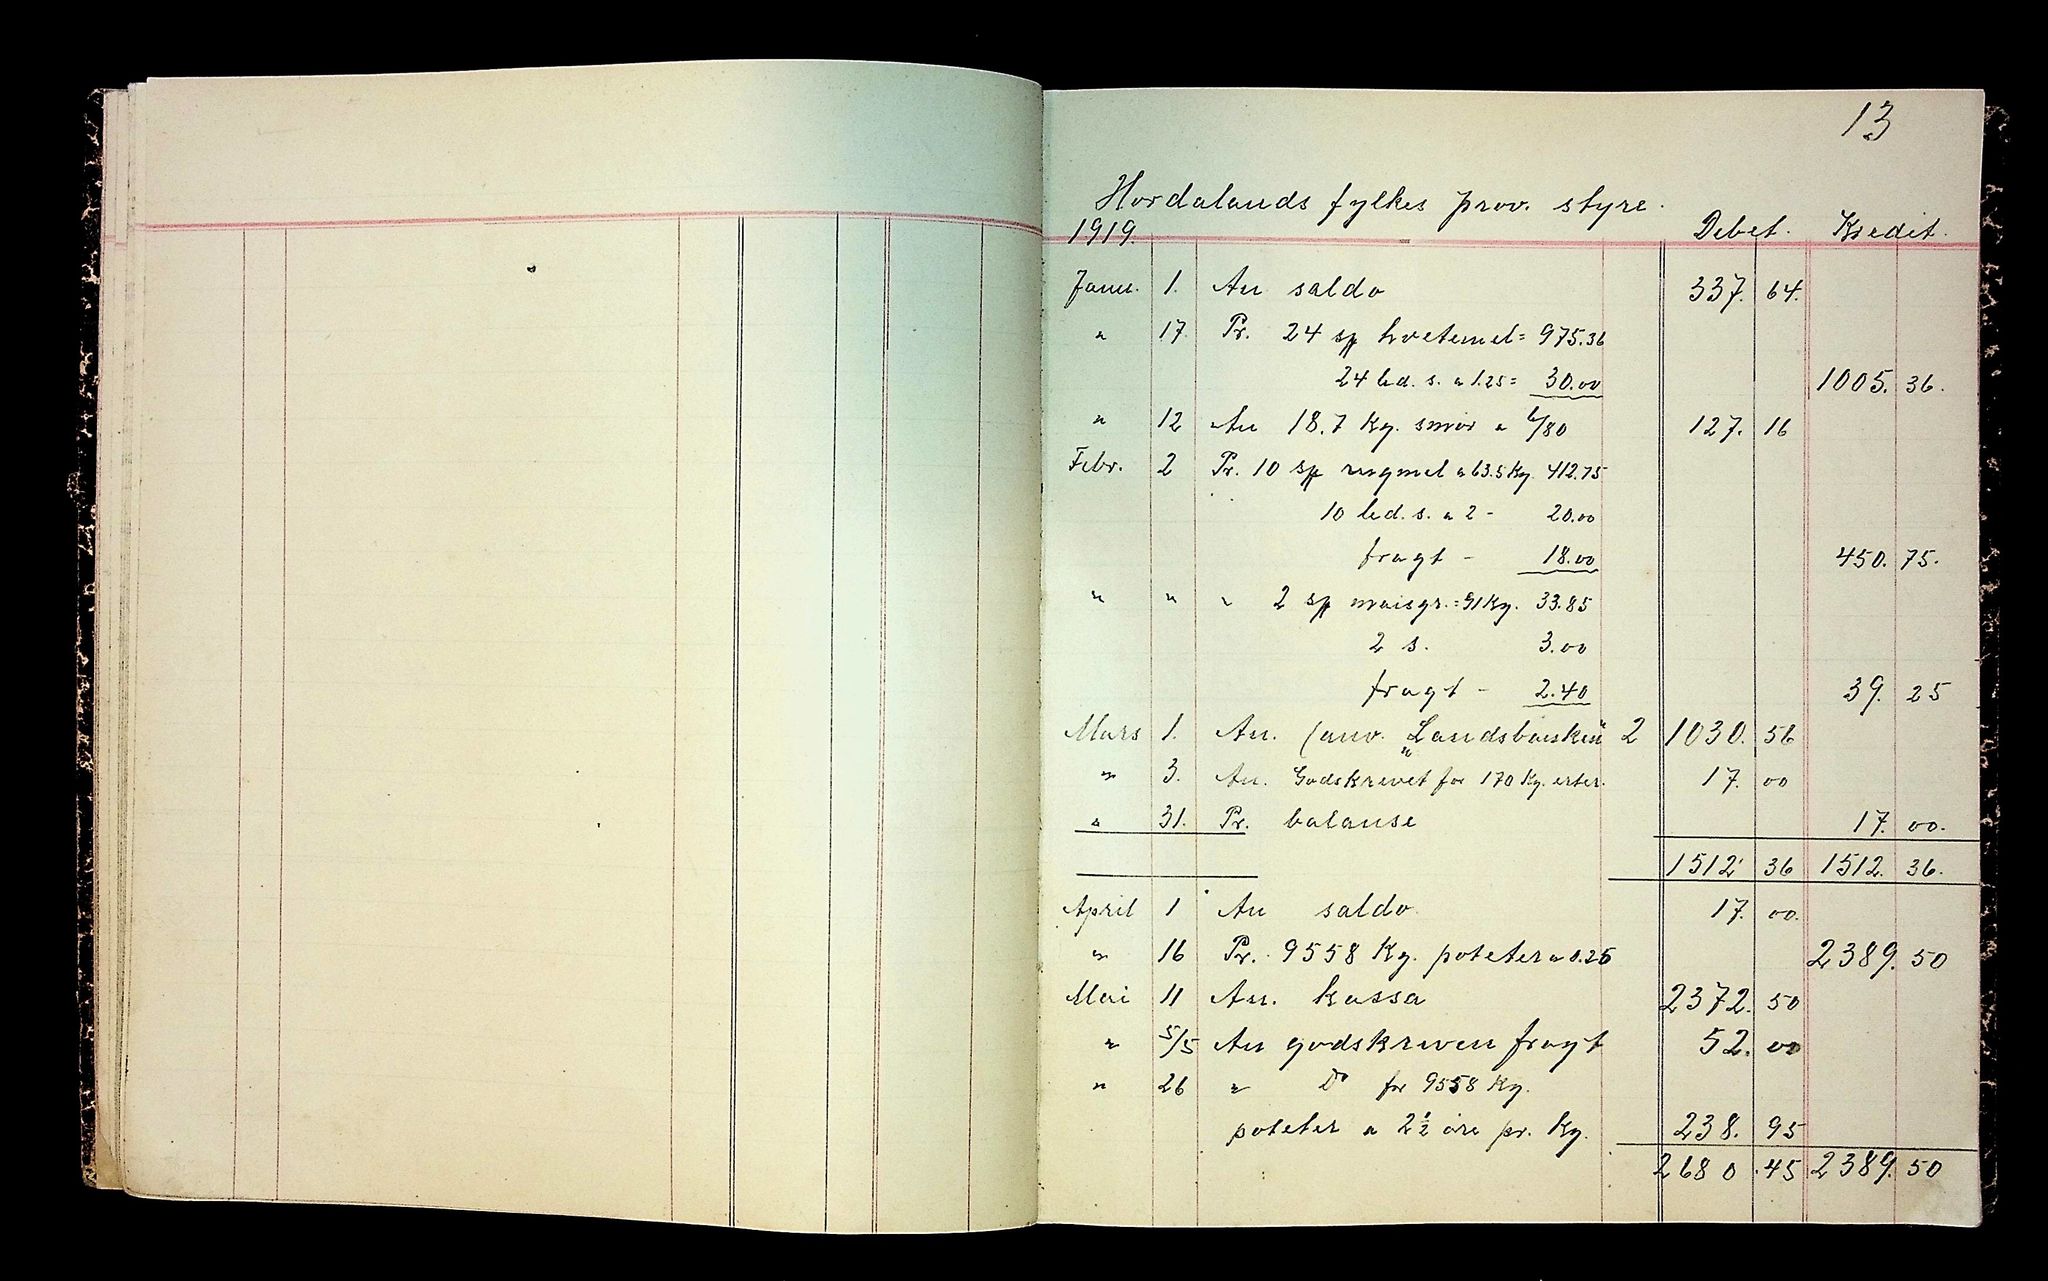 13
Hordalands fylkes prov. styre.
1919. Debet. Kredit.
Janu. 1. An saldo 337. 64.
" 17. Pr. 24 sp hvetemel = 975.36
24 led. s. a 1.25 = 30.00 1005. 36.
" 12 An 18.7 Kg. smör a 6/80 127. 16
Febr. 2 Pr. 10 sp rugmel a 63.5 Kg. 412.75
10 led. s. a 2 - 20.00
fragt - 18.00 450. 75.
" " " 2 sp maisgr. = 91 Kg. 33.85
2 s. 3.00
fragt - 2.40 39. 25
Mars 1. An. (anv. „Landsbanken" 2 1030. 56
" 3. An. Godskrevet for 170 Kg. erter. 17. 00
" 31. Pr. balanse 17. 00.
1512 36 1512. 36.
April 1 An saldo 17. 00.
" 16 Pr. 9558 Kg. poteter a 0.25 2389. 50
Mai 11 An. kassa 2372. 50
" 5/5 An godskriven fragt 52. 00
" 26 " Do for 9558 Kg.
poteter a 2 1/2 öre pr. Kg. 238. 95
2680.45 2389. 50